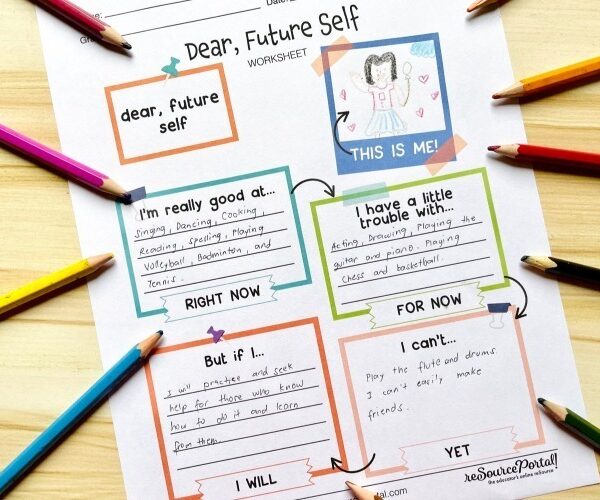 Date:
Dear, Future Self
WORKSHEET
dear, future
self
THIS IS ME!
I'm really good at...
Singing, Dancing, Cooking,
Reading, Spelling, Playing
Volleyball, Badminton, and
Tennis.
RIGHT NOW
I have a little
trouble with...
Acting, Drawing, Playing the
guitar and piano. Playing
Chess and basketball.
FOR NOW
But if I...
I will practice and seek
help for those who know
how to do it and learn
from them.
I WILL
I can't...
Play the flute and drums.
I can't easily make
friends.
YET
reSourcePortal!
the educator's online resource